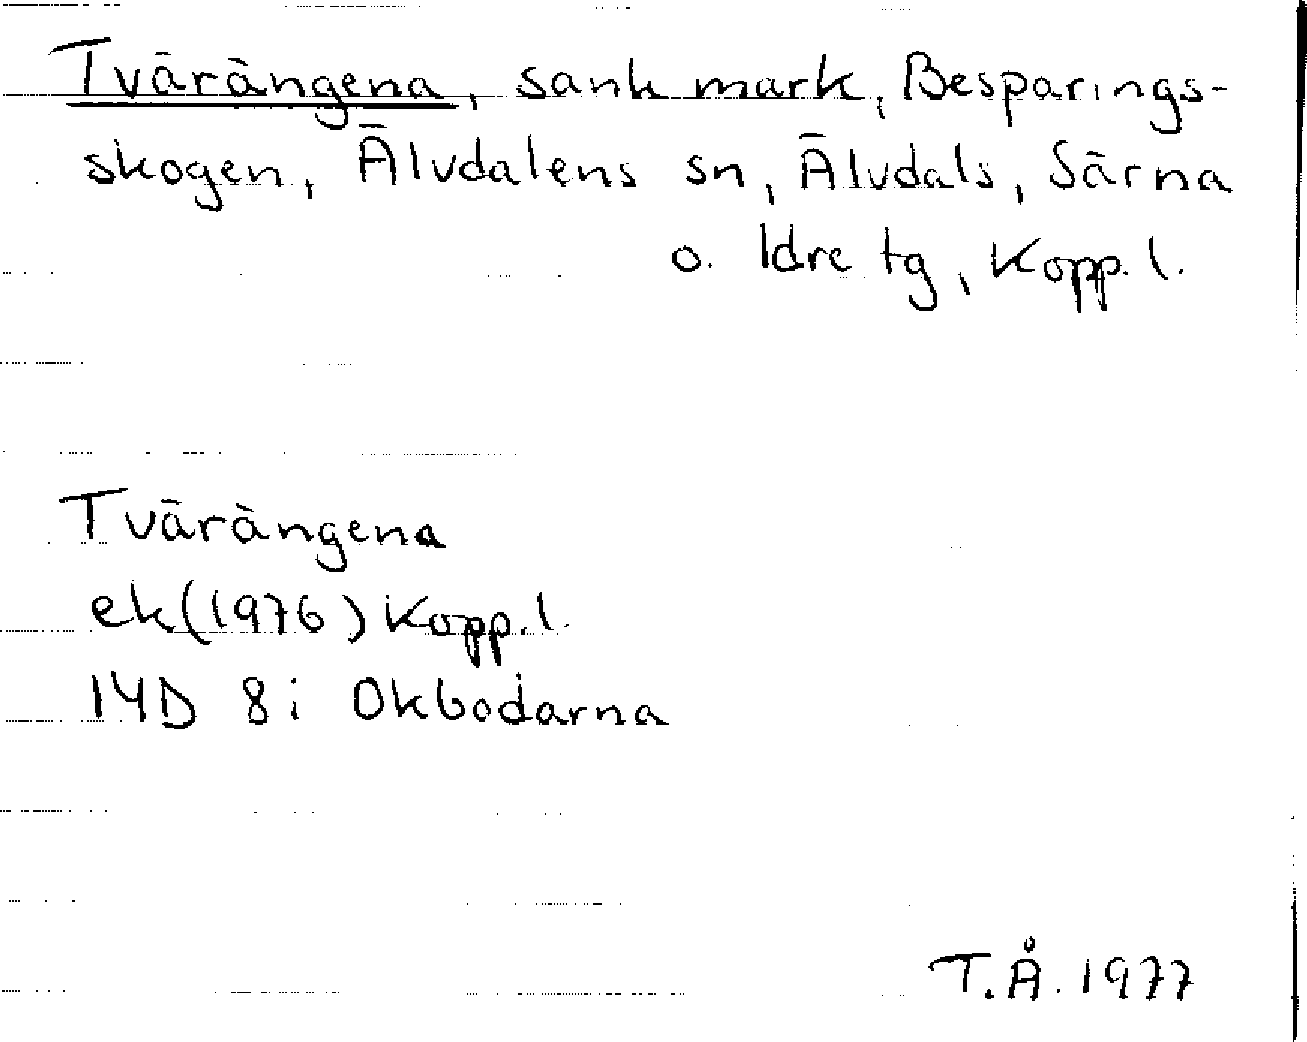 Tvärängena, sank mark, Besparings-
skogen, Älvdalens sn, Älvdals, Särna
o. Idre tg, Kopp. l.
Tvärängena
ek (1976) Kopp. l.
14D 8i Okbodarna
T.Å. 1977